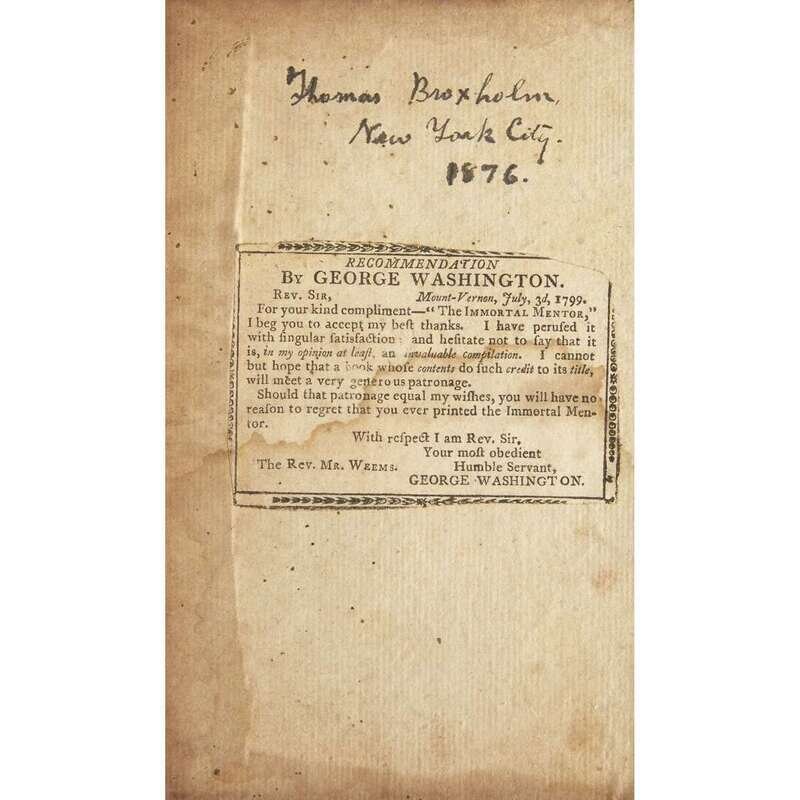 Thomas Broxholm,
New York City.
1876.
RECOMMENDATION
BY GEORGE WASHINGTON.
REV. SIR, Mount-Vernon, July, 3d, 1799.
For your kind compliment—“The IMMORTAL MENTOR,”
I beg you to accept my beſt thanks. I have peruſed it
with ſingular ſatisfaction: and heſitate not to ſay that it
is, in my opinion at leaſt, an invaluable compilation. I cannot
but hope that a book whoſe contents do ſuch credit to its title,
will meet a very generous patronage.
Should that patronage equal my wiſhes, you will have no
reaſon to regret that you ever printed the Immortal Men-
tor.
With reſpect I am Rev. Sir,
Your moſt obedient
The Rev. MR. WEEMS. Humble Servant,
GEORGE WASHINGTON.